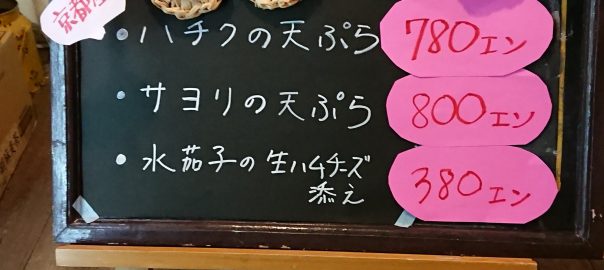 京都産
・ハチクの天ぷら 780エン
・サヨリの天ぷら 800エン
・水茄子の生ハムチーズ 380エン
添え